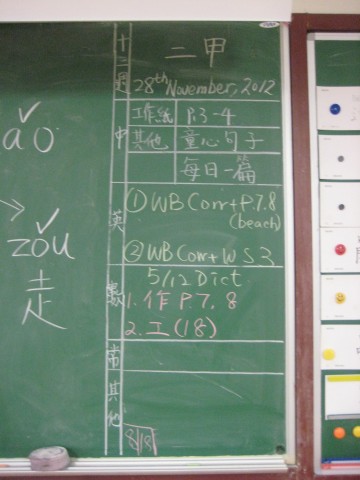 ǎo
zǒu
走
二甲
28th November, 2012
十二周
中
工作紙 P.3-4
其他 童心句子
每日一篇
英
① WB Corr + P.7.8
(beach)
② WB Corr + WS3
5/12 Dict
數
1. 作 P.7, 8
2. 工(18)
常
其他